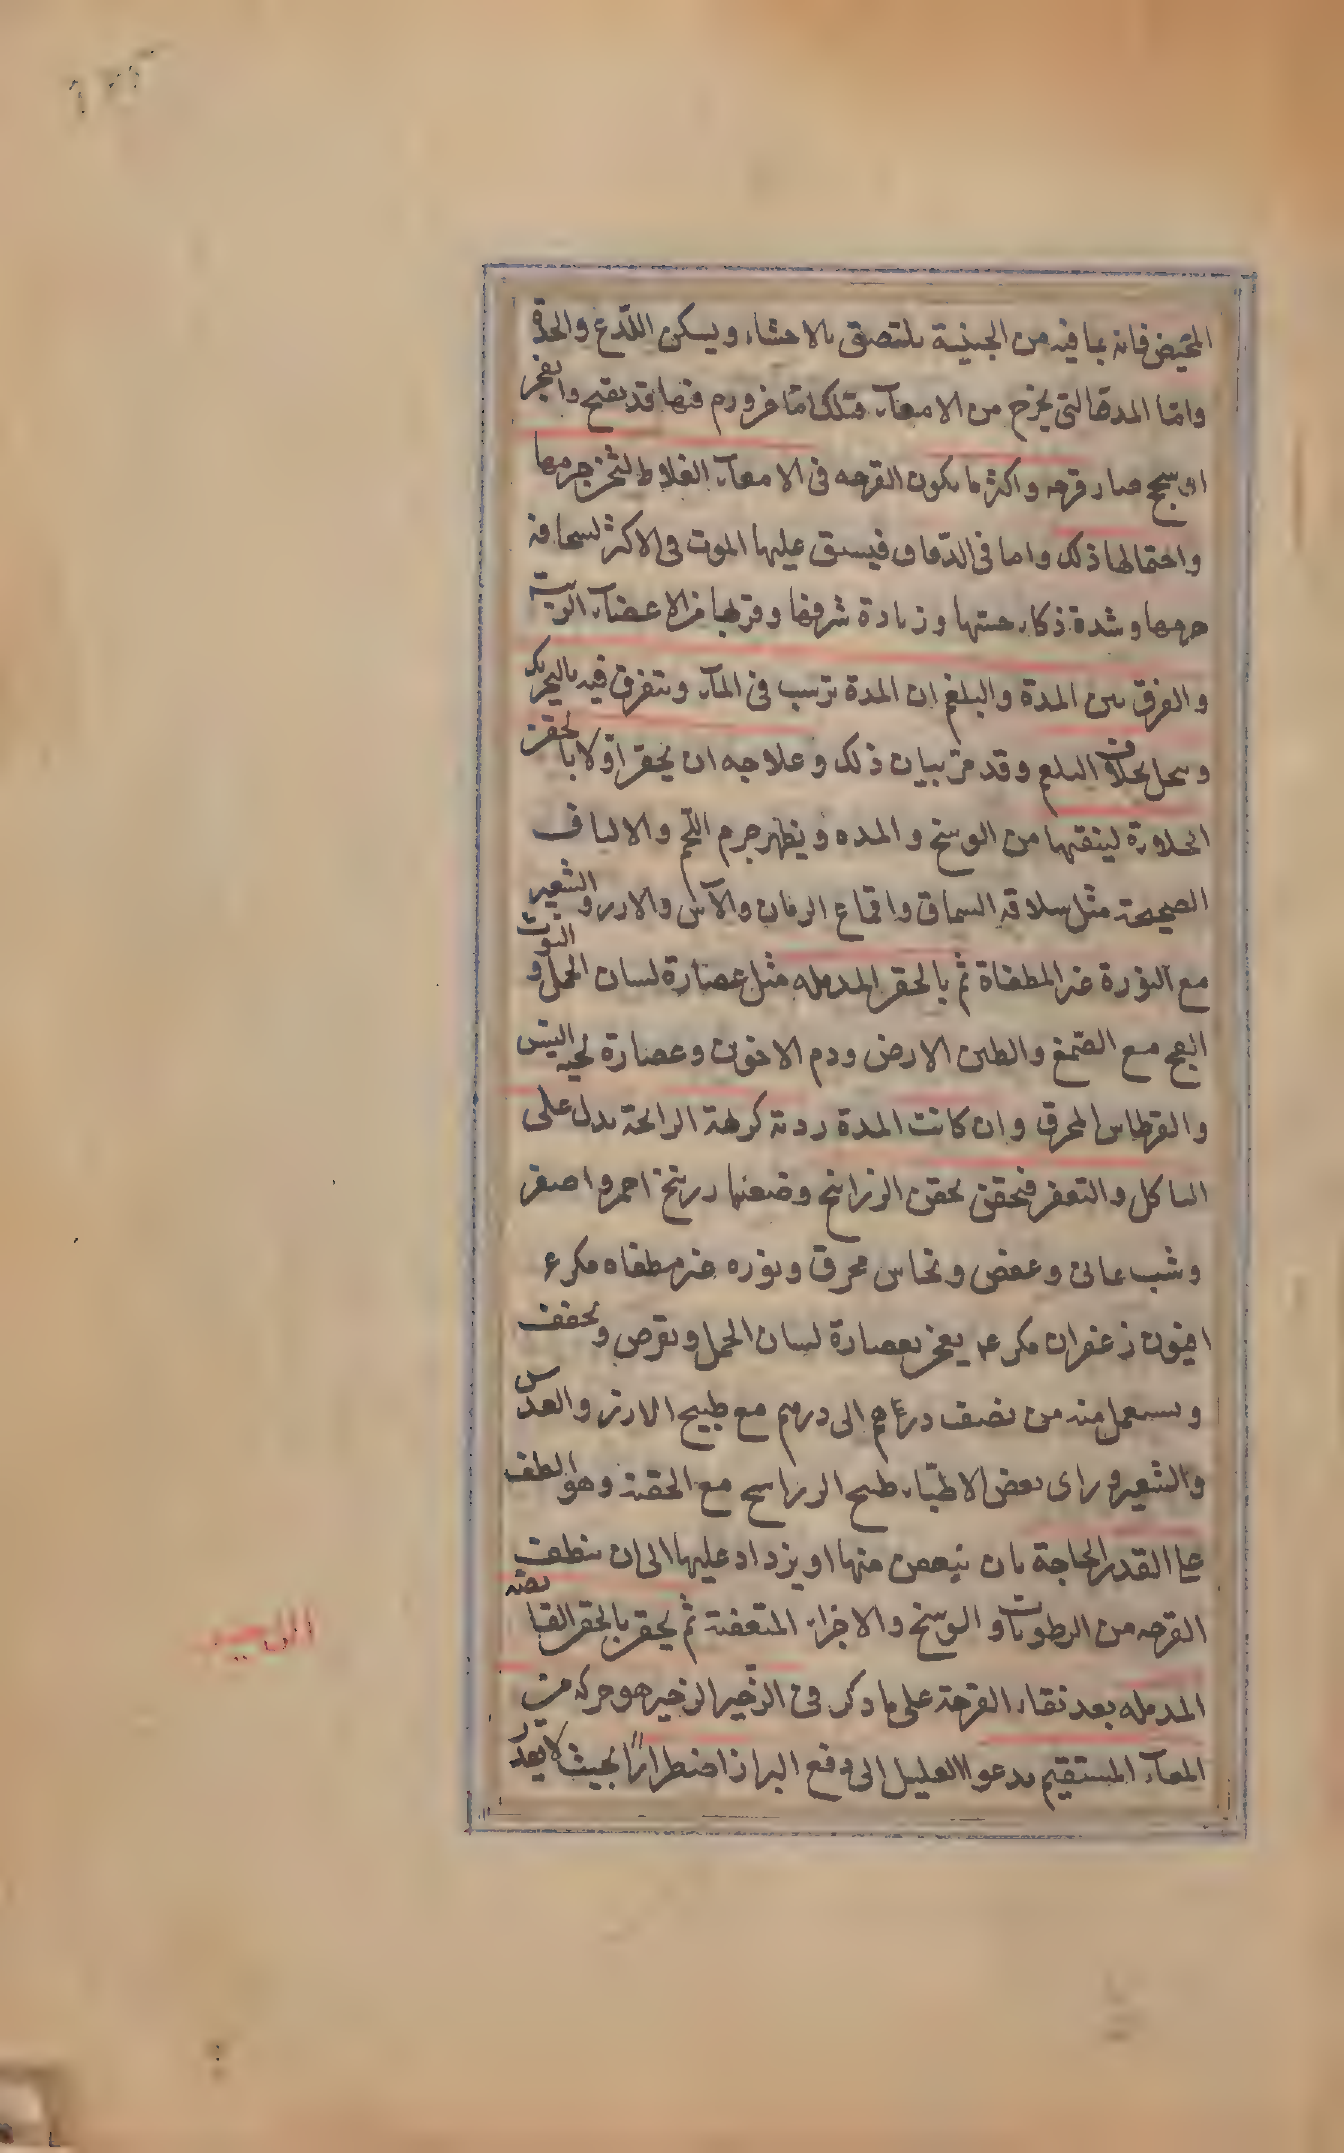 المخيض فانه بما فيه من الجبنية يلتصق بالاحشاء ويسكن اللذع والحدة
واما المدة التى يخرج من الامعآء فتلك اما من ورم فيها قد تقيح وانفجر
او سحج صار قرحه واكثر ما يكون القرحه فى الامعآء الغلاظ لثخن جرمها
واحتمالها ذلك واما فى الدقاق فيسبق عليها الموت فى الاكثر لسخافة
جرمها وشدة ذكاء حسها وزيادة شرفها وقربها من الاعضآء الرئيسة
والفرق بين المدة والبلغم ان المدة ترسب فى المآء ويتفرق فيه بالتحريك
وينحل بخلاف البلغم وقد مر بيان ذلك وعلاجه ان يحقن اولا بالحقن
الجلاءة لينقيها من الوسخ والمده ويظهر جرم اللحم والالياف
الصحيحة مثل سلاقه السماق واقماع الرمان والآس والارز والشعير
مع النورة غير المطفاة ثم بالحقن المدمله مثل عصارة لسان الحمل و التوت
الفج مع الصمغ والطين الارمنى ودم الاخوين وعصارة لحيه التيس
والقرطاس المحرق وان كانت المدة رديه كريهة الرائحة يدل على
التاكل والتعفن فيحقن بحقن الزرانيخ وصفتها زرنيخ احمر واصفر
وشب يمانى وعفص ونحاس محرق ونوره غير مطفاه مكرع
افيون زعفران مكرع يعجن بعصارة لسان الحمل ويقرص ويجفف
ويستعمل منه من نصف درهم الى درهم مع طبيخ الارز والعدس
والشعير وراى بعض الاطبآء طبخ الزرانيخ مع الحقنة وهو الطف
على القدر الحاجة بان ينقص منها او يزداد عليها الى ان ينظف
القرحه من الرطوبات و الوسخ والاجزاء المتعفنة ثم يحقن بالحقن القابضه
المدمله بعد نقاء القرحة على ما ذكر فى الزحير الزحير هو حركه من
المعآء المستقيم يدعو العليل الى دفع البراز اضطرارًا بحيث لا يقدر
الزحير